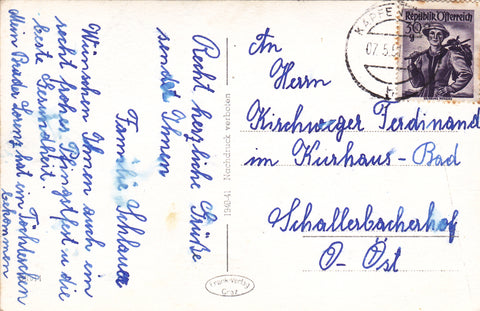 Recht herzliche Grüße
sendet Ihnen
Familie Schlauer
Wünschen Ihnen auch ein
recht frohes Pfingstfest u die
beste Gesundheit!
Mein Bruder Lorenz hat ein Töchterchen
bekommen
1940-41 Nachdruck verboten
Frank-Verlag
Graz
Republik Österreich
30 g
KAPFEN
07.5.5
An
Herrn
Kirchweger Ferdinand
im Kurhaus-Bad
Schallerbacherhof
O-Öst